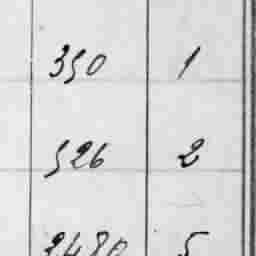 350 1
526 2
2480 5